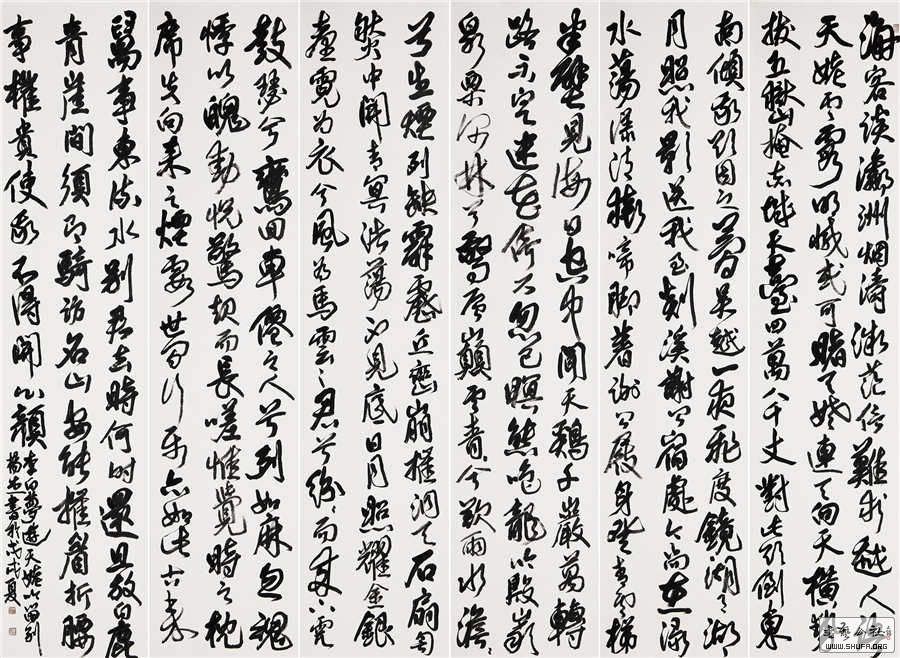 海客谈瀛洲烟涛微茫信難求越人语
天姥雲霓明滅或可睹天姥連天向天橫勢
拔五嶽掩赤城天臺四萬八千丈對此欲倒東
南傾我欲因之夢吳越一夜飛度鏡湖月湖
月照我影送我至剡溪謝公宿處今尚在渌
水蕩漾清猿啼脚著謝公屐身登青雲梯
半壁見海日空中聞天鷄千巖萬轉
路不定迷花倚石忽已暝熊咆龍吟殷巖
泉栗深林兮驚層巔雲青青兮欲雨水澹澹
兮生煙列缺霹靂丘巒崩摧洞天石扇訇
然中開青冥浩蕩不見底日月照耀金銀
臺霓為衣兮風為馬雲之君兮紛紛而來下虎
鼓瑟兮鸞回車僊之人兮列如麻忽魂
悸以魄動怳驚起而長嗟惟覺時之枕
席失向來之煙霞世間行樂亦如此古來
萬事東流水别君去時何時還且放白鹿
青崖間須行即騎訪名山安能摧眉折腰
事權貴使我不得開心顏
李白夢遊天姥吟留别
戊戌夏
WWW.SHUFA.ORG